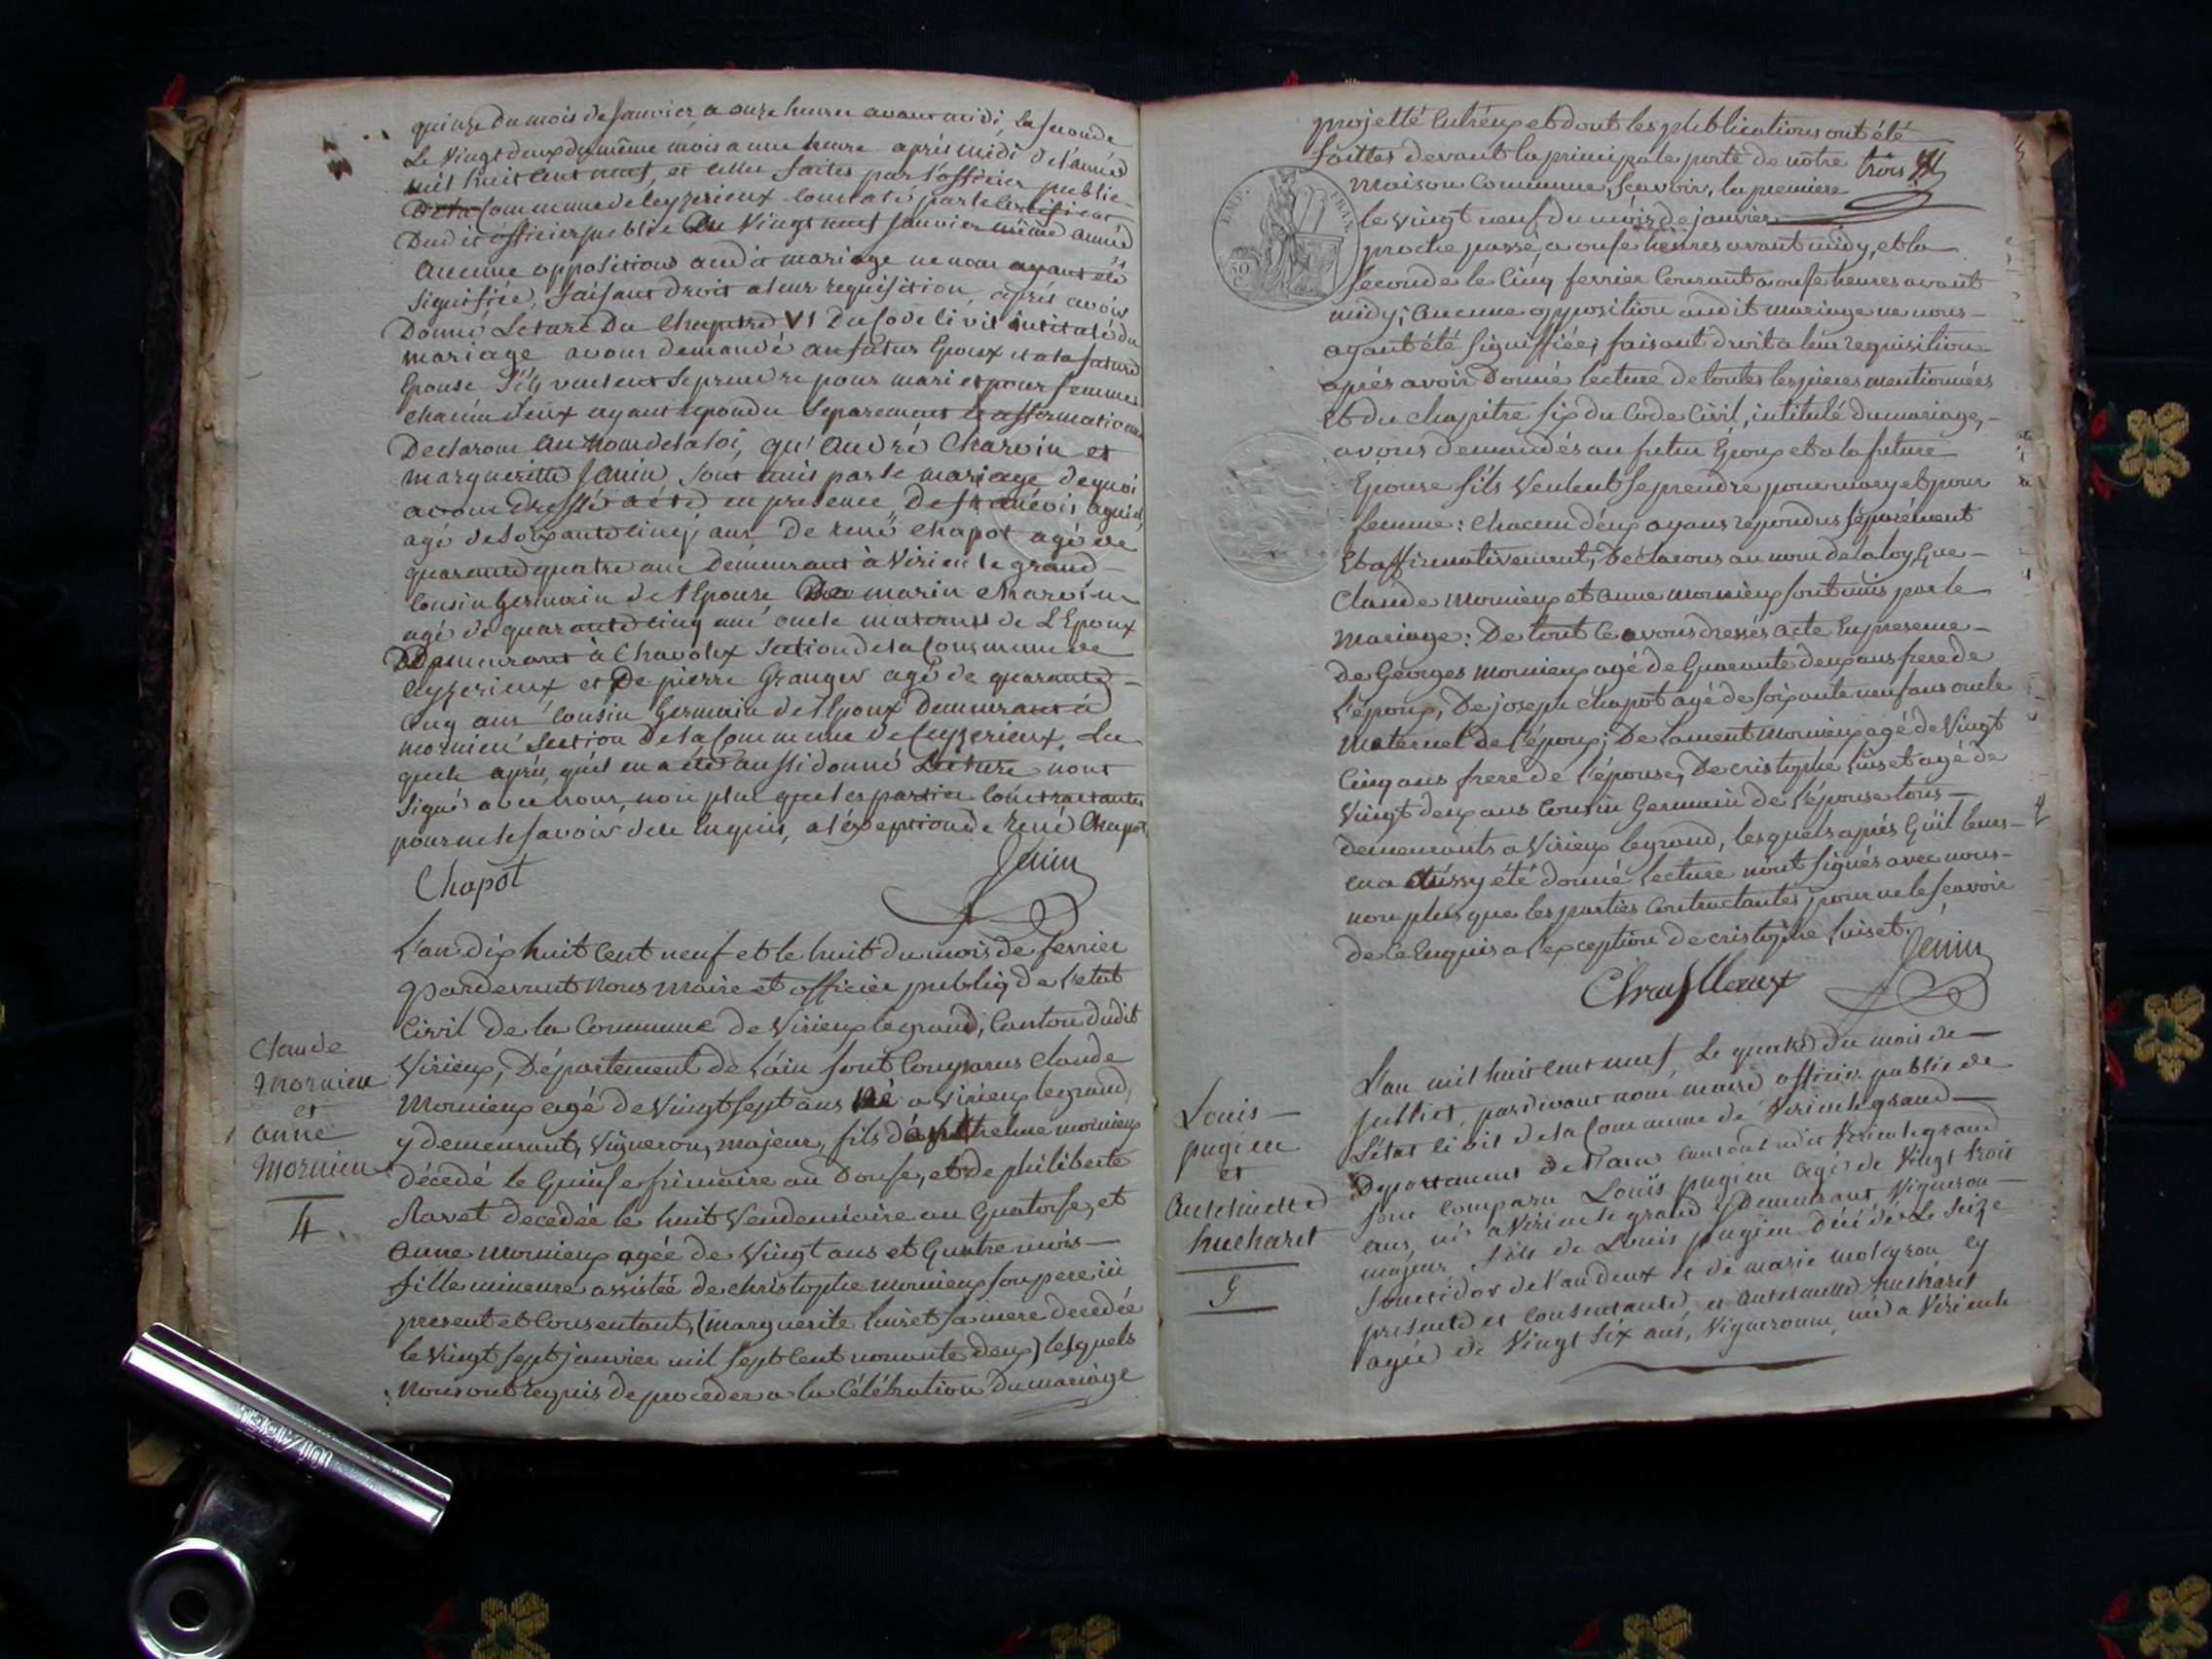 quinze du mois de Janvier, a onze heures avant midi, La seconde
Le Vingt deux du même mois a une heure après midi de l'année
mil huit cent neuf, et celles faites par l'officier public
De la Commune de Ceyzerieux constaté par le certificat
Dudit officier public Du Vingt neuf Janvier même année
aucune opposition audit mariage ne nous ayant été
signifiée, faisant droit a leur requisition, après avoir
Donné Lecture Du Chapitre VI Du Code Civil intitulé du
mariage avons demandé au futur Epoux et a la future
Epouse S'ils veulent se prendre pour mari et pour femme
chacun d'eux ayant repondu separement et affirmativement
Declarons au Nom de la loi, qu'André Charvin et
margueritte Janin, sont unis par le mariage, de quoi
avons dressé acte en presence De francois
agé de soixante cinq ans De rené Chapot agé de
quarante quatre ans Demeurant à Virieu le grand
Cousin Germain de l'Epouse De marin charvin
agé de quarante cinq ans oncle maternel de L'Epoux
Demeurant à Chavoley Section de la Commune de
Ceyzerieux et De pierre Granger agé de quarante
Cinq ans Cousin Germain de l'Epoux Demeurant à
mornieu Section de la Commune de Ceyzerieux. Les
quels après, qu'il en a été aussi donné Lecture nont
signé avec nous, non plus que les parties Contractantes
pour ne le savoir de ce Enquis, a l'exeption de René Chapot
Chapot Jenin
L'an dix huit Cent neuf et le huit du mois de fevrier
Pardevant Nous Maire et officier publiq de l'etat
Civil de la Commune de Virieux le grand, Canton dudit
Virieux, Département de L'ain sont Comparus Claude
Mornieux agé de Vingt sept ans Né a Virieux le grand
y demeurant, Vigneron, majeur, fils d'anthelme mornieux
décedé le Quinse frimaire an Douse, et de philiberte
Ravet decedée le huit Vendemiaire an Quatorse, et
Anne mornieux agée de Vingt ans et Quatre mois
fille mineure assistée de christophe mornieux son pere ici
present et Consentant, (marguerite luiset sa mere decedée
le Vingt sept janvier mil sept Cent nonante deux) lesquels
Nous ont requis de proceder a la Célébration du mariage
Claude
Mornieu
et
anne
Mornieu
4
projetté Entr'eux et dont les publications ont été
faittes devant la principale porte de notre trois
Maison Commune, scavoir, la premiere
le vingt neuf du mois de janvier
proche passé, a onse heures avant midy, et la
seconde le Cinq fevrier Courant a onse heures avant
midy; Aucune opposition audit mariage ne nous
ayant été signiffiée; faisant droit a leur requisition
après avoir Donné lecture de toutes les pieces mentionnées
et du chapitre six du Code Civil, intitulé du mariage,
avons demandés au futur Epoux et a la future
Epouse s'ils Veulent se prendre pour mary et pour
femme: Chacun d'eux ayans repondus séparément
et affirmativement, Declarons au nom de la loy, Que
Claude Mornieux et Anne mornieux sont unis par le
Mariage: De tout Ce avons dressés acte En presence
de Georges Mornieux agé de Quarante deux ans frere de
l'époux, De joseph Chapot agé de soixante neuf ans oncle
Maternel de l'époux; De Lament Mornieux agé de Vingt
Cinq ans frere de l'épouse, De cristophe luiset agé de
Vingt deux ans Cousin Germain de l'épouse tous
demeurants a Virieux le grand, lesquels après Qu'il leurs
en a Aussy été donné lecture n'ont signés avec nous
non plus que les parties Contractantes, pour ne le scavoir
de ce Enquis a l'exception de cristophe luiset.
Jenin
L'an mil huit cent neuf, Le quatre du mois de
juilliet, pardevant nous maire officier public de
L'état Civil de la Commune de Virieu le grand
Departement de l'ain Canton dudit Virieu le grand
sont Comparu Louis pugieu agé de Vingt trois
ans, né a Virieu le grand y Demeurant, Vigneron
majeur fils de Louis pugieu décédé Le seize
Messidor de l'an deux et de marie moleyron cy
presente et Consentante, et antoinette hucharet
agée de Vingt six ans, Vigneronne, née a Virieu le
Louis
pugieu
et
Antoinette
hucharet
5
EMP. FRAN.
50
C